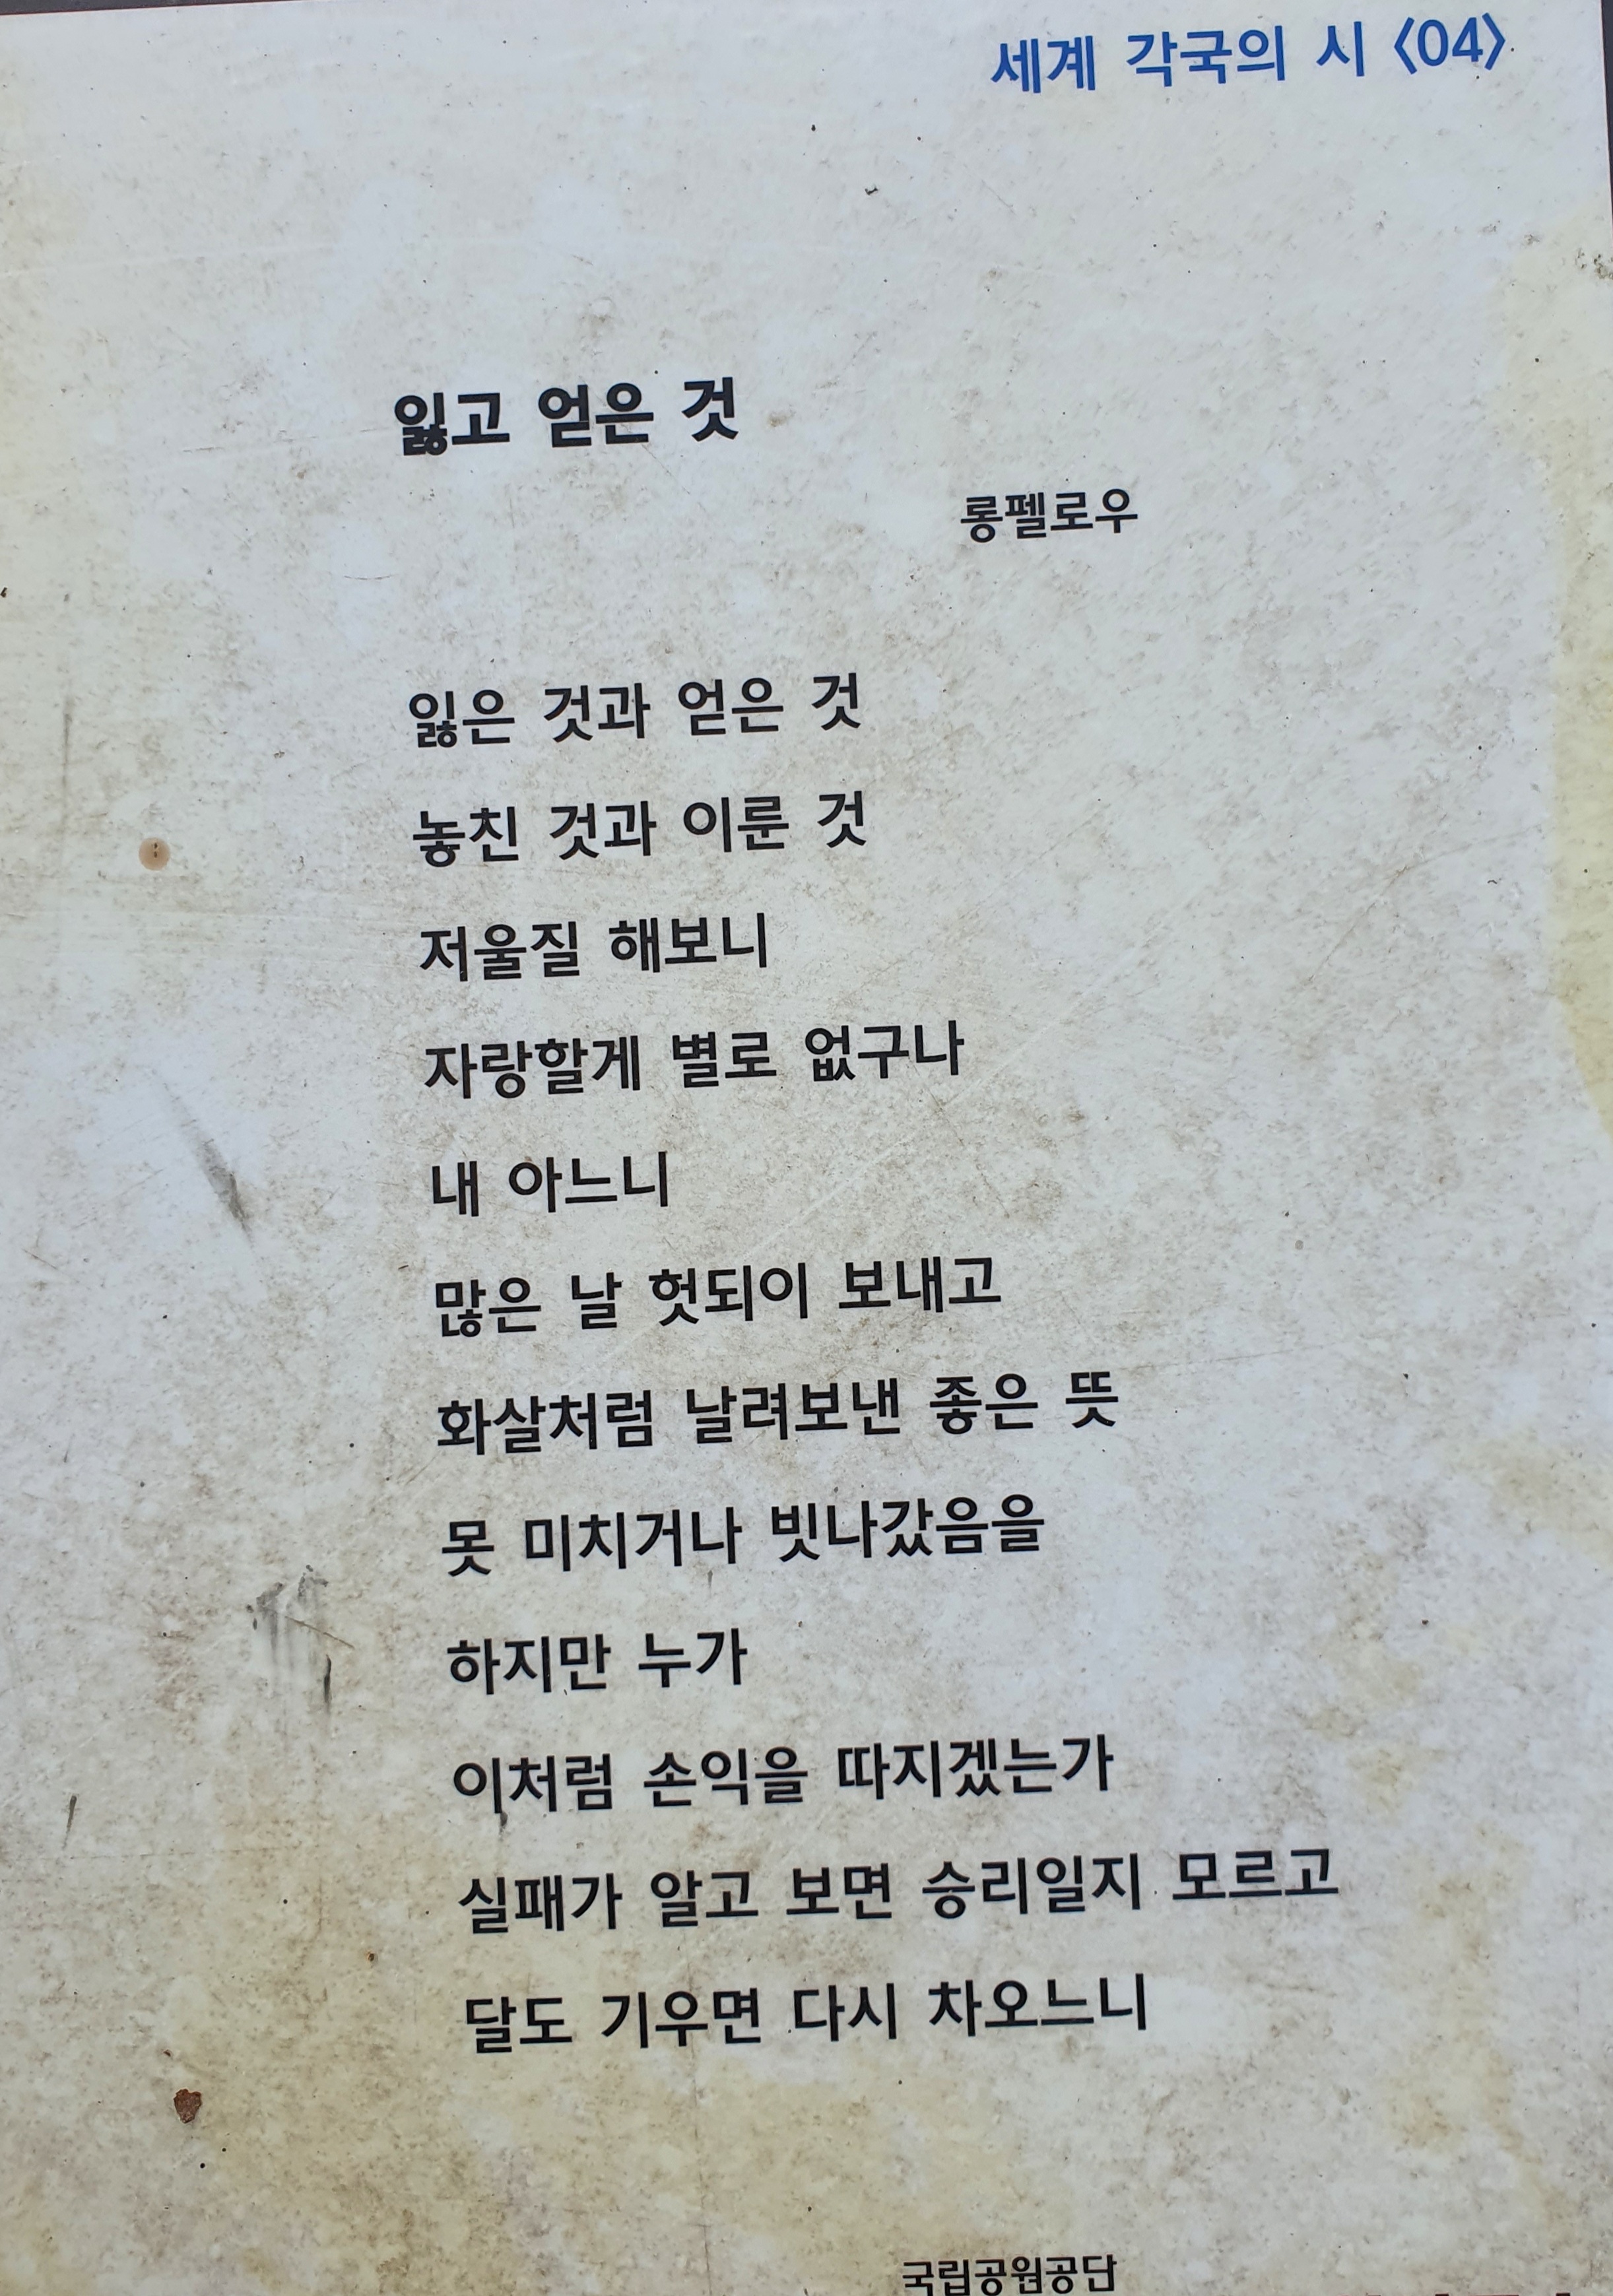 세계 각국의 시 〈04〉
잃고 얻은 것
롱펠로우
잃은 것과 얻은 것
놓친 것과 이룬 것
저울질 해보니
자랑할게 별로 없구나
내 아느니
많은 날 헛되이 보내고
화살처럼 날려보낸 좋은 뜻
못 미치거나 빗나갔음을
하지만 누가
이처럼 손익을 따지겠는가
실패가 알고 보면 승리일지 모르고
달도 기우면 다시 차오느니
국립공원공단